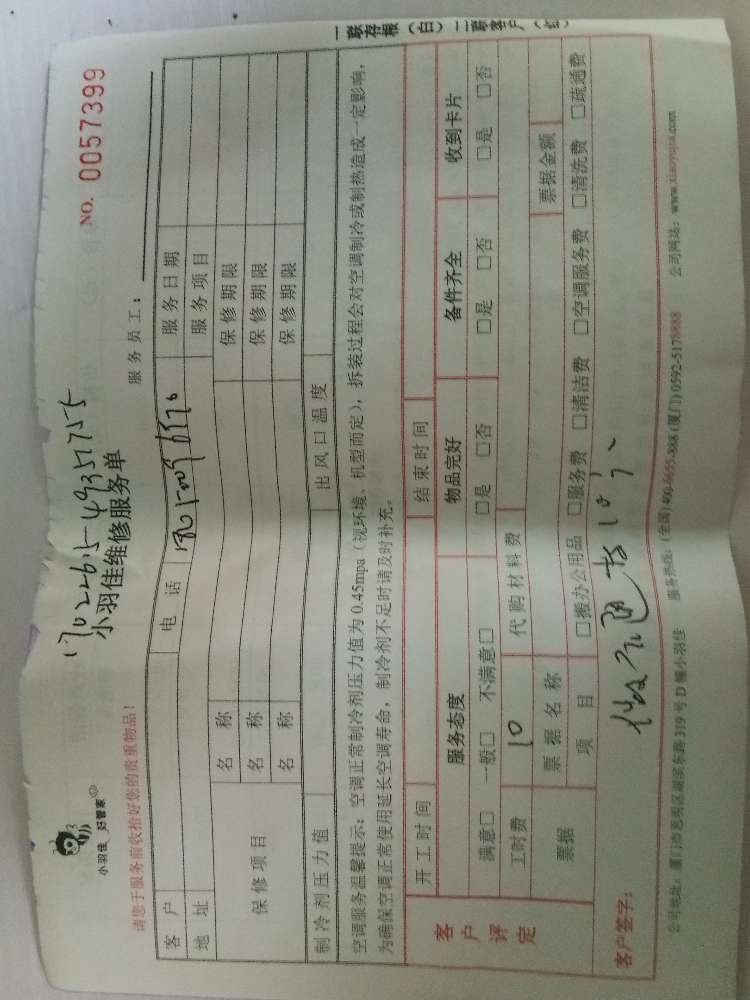 小羽佳 好管家
NO. 0057399
小羽佳维修服务单
请您于服务前收拾好您的贵重物品！
服务员工：
客户 电话 服务日期
地址 服务项目
保修项目 名称 保修期限
名称 保修期限
名称 保修期限
制冷剂压力值 出风口温度
空调服务温馨提示：空调正常制冷剂压力值为0.45mpa（视环境、机型而定），拆装过程会对空调制冷或制热造成一定影响，
为确保空调正常使用延长空调寿命，制冷剂不足时请及时补充。
开工时间 结束时间
客户评定 服务态度 物品完好 备件齐全 收到卡片
满意□ 一般□ 不满意□ □是 □否 □是 □否 □是 □否
工时费 10 代购材料费
票据 票据名称 票据金额
项目 □搬办公用品 □服务费 □清洁费 □空调服务费 □清洗费 □疏通费
客户签字：
公司地址：厦门市思明区湖滨东路319号D幢小羽佳 服务热线：(全国)400-6655-888 (厦门)0592-5178888 公司网站：www.xiaoyujia.com
一联存根（白）二联客户（红）